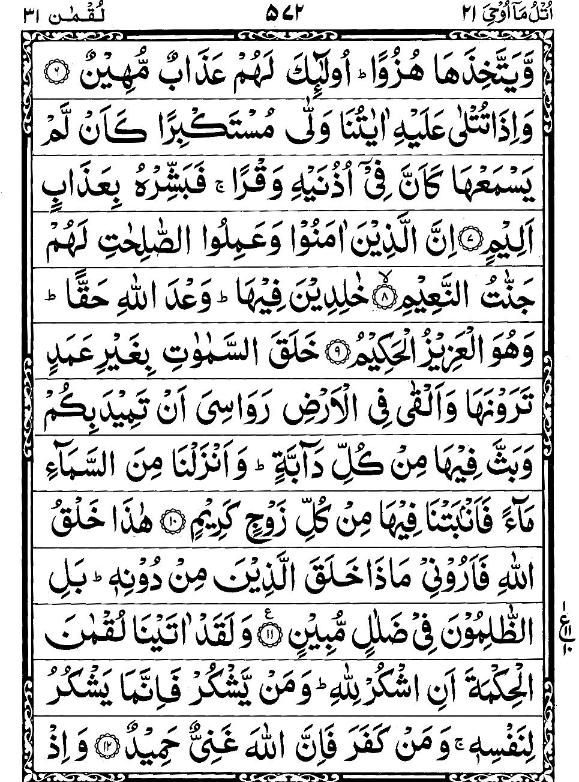 اُتْلُ مَاۤ اُوْحِیَ ۲۱ ۵۷۲ لُقْمٰن ۳۱
وَّیَتَّخِذَهَا هُزُوًا ؕ اُولٰٓئِكَ لَهُمْ عَذَابٌ مُّهِیْنٌ ۶
وَاِذَا تُتْلٰی عَلَیْهِ اٰیٰتُنَا وَلّٰی مُسْتَكْبِرًا كَاَنْ لَّمْ
یَسْمَعْهَا كَاَنَّ فِیْۤ اُذُنَیْهِ وَقْرًا ۚ فَبَشِّرْهُ بِعَذَابٍ
اَلِیْمٍ ۷ اِنَّ الَّذِیْنَ اٰمَنُوْا وَعَمِلُوا الصّٰلِحٰتِ لَهُمْ
جَنّٰتُ النَّعِیْمِ ۸ۙ خٰلِدِیْنَ فِیْهَا ؕ وَعْدَ اللّٰهِ حَقًّا ؕ
وَهُوَ الْعَزِیْزُ الْحَكِیْمُ ۹ خَلَقَ السَّمٰوٰتِ بِغَیْرِ عَمَدٍ
تَرَوْنَهَا وَاَلْقٰی فِی الْاَرْضِ رَوَاسِیَ اَنْ تَمِیْدَ بِكُمْ
وَبَثَّ فِیْهَا مِنْ كُلِّ دَآبَّةٍ ؕ وَاَنْزَلْنَا مِنَ السَّمَآءِ
مَآءً فَاَنْۢبَتْنَا فِیْهَا مِنْ كُلِّ زَوْجٍ كَرِیْمٍ ۱۰ هٰذَا خَلْقُ
اللّٰهِ فَاَرُوْنِیْ مَاذَا خَلَقَ الَّذِیْنَ مِنْ دُوْنِهٖ ؕ بَلِ
الظّٰلِمُوْنَ فِیْ ضَلٰلٍ مُّبِیْنٍ ۱۱ ع وَلَقَدْ اٰتَیْنَا لُقْمٰنَ
ع ۱۱ ۱۰
الْحِكْمَةَ اَنِ اشْكُرْ لِلّٰهِ ؕ وَمَنْ یَّشْكُرْ فَاِنَّمَا یَشْكُرُ
لِنَفْسِهٖ ۚ وَمَنْ كَفَرَ فَاِنَّ اللّٰهَ غَنِیٌّ حَمِیْدٌ ۱۲ وَاِذْ